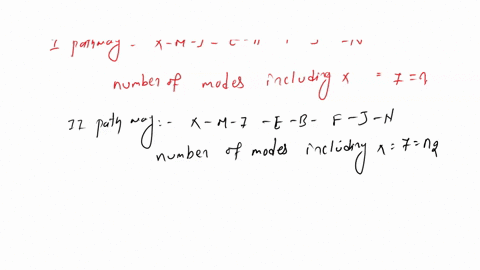 I pathway - X-M-J-E-
number of modes including x = 7 = n
II path way :- X-M-J-E-B-F-J-N
number of modes including x = 7 = n2